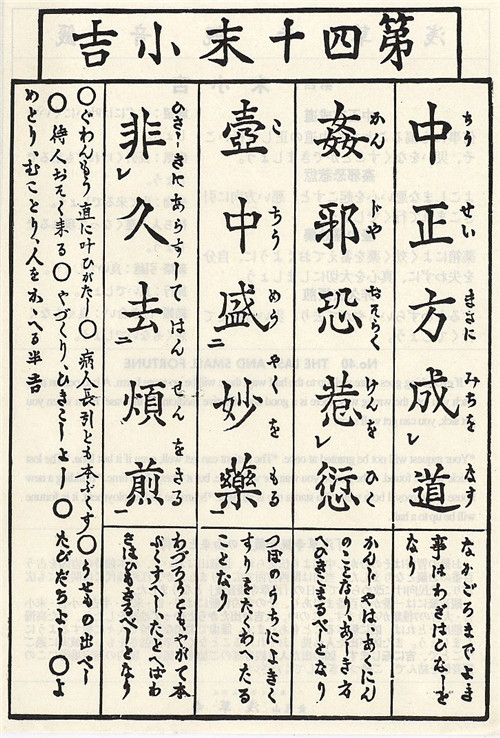 第四十末小吉
中正方成レ道
ちう せい まさに みちを なす
なかごろまでよき
事はわざはひなしと
なり
姦邪恐惹レ愆
かん じや おそらく けんを ひく
かんじやは、あくにん
のことなり、あしき方
べしとなり
壺中盛二妙藥一
こ ちう めう やくを もる
つぼのうちによきく
すりをたくわへたる
ことなり
非レ久去二煩煎一
ひさしきにあらずしてはんせんをさる
本
ぶくすべし、たとへばわ
ざはひもさるべしとなり
○ぐわんもう直に叶ひがたし○病人長引とも本ぶくす○うせもの出べし
○待人おそく来る○やづくり、ひきこしよし○たびだちよし○よ
めとり、むことり、人をかゝへる半吉